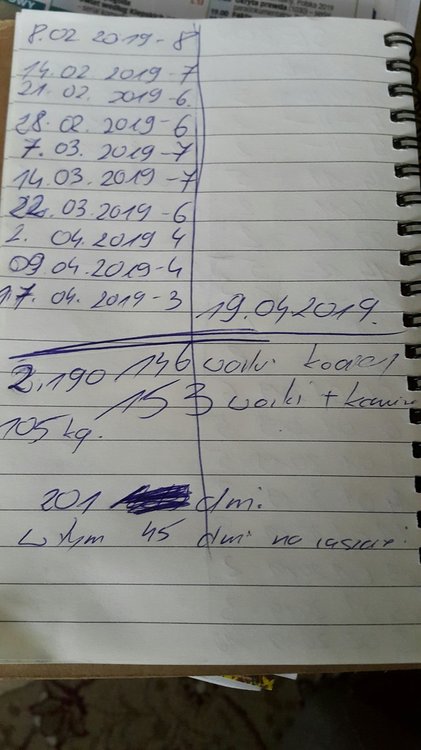 8.02 2019-8
14.02.2019-7
21.02.2019-6.
28.02.2019-6
7.03.2019-7
14.03.2019-7
22.03.2019-6
2. 04.2019 4
09.04.2019-4
17. 04.2019-3
19.04.2019.
2.190 146 worki
153 worki +
105 kg.
201 dni.
w tym 45 dni na